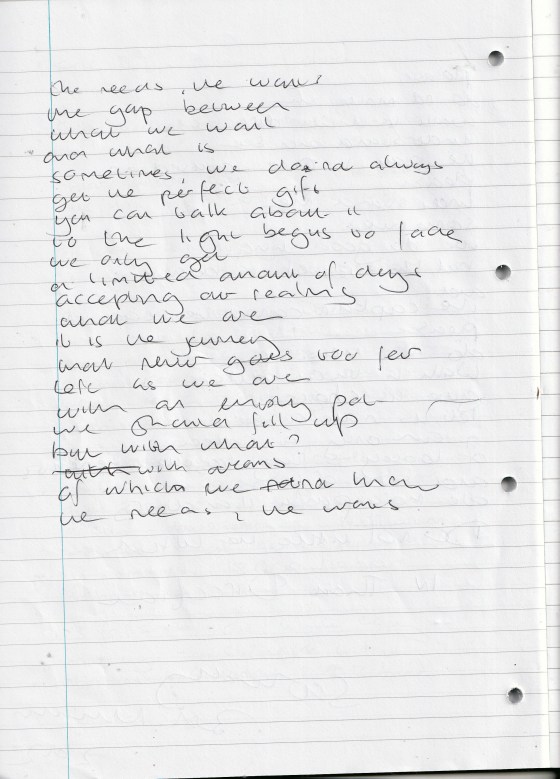 the needs, the wants
the gap between
what we want
and what is
sometimes, we do always
get the perfect gift
you can talk about it
to the light begins to fade
we only get
a limited amount of days
accepting our realms
and we are
it is the journey
that never goes too far
left as we are
with an empty pot
we fill up
but with what?
with dreams
of which we
the needs, the wants